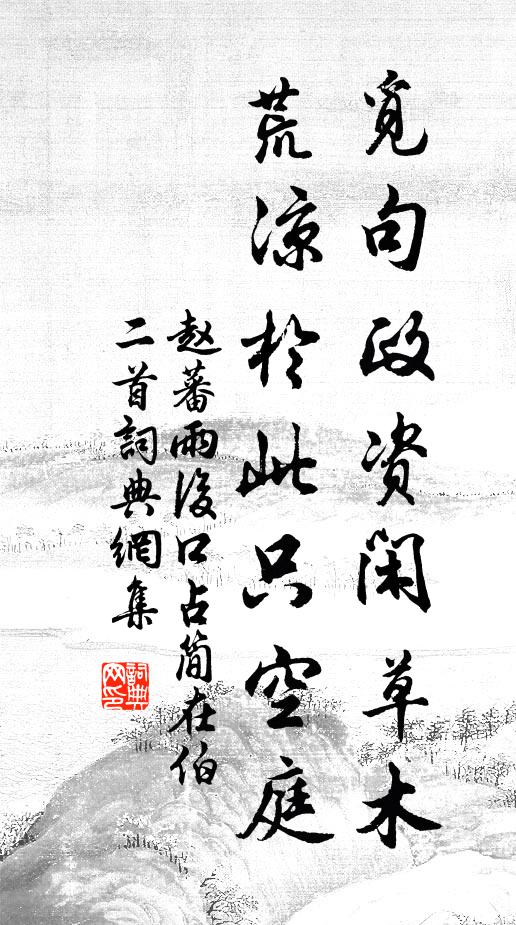 覓句政资閑草木
荒凉於此只空庭
赵蕃雨後口占简在伯
二首詞典網集
詞典網印